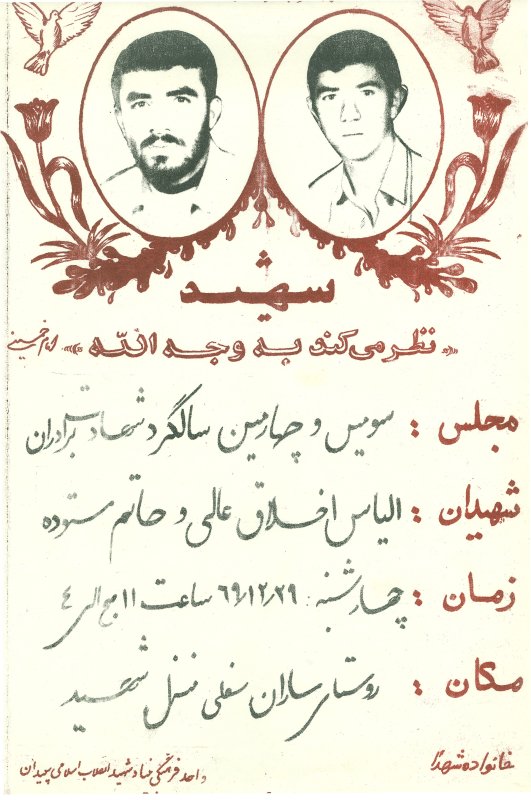 شهید
«نظر می‌کند به وجه الله» امام خمینی
مجلس : سومین و چهارمین سالگرد شهادت برادران
شهیدان : الیاس اخلاق عالی و حاتم ستوده
زمان : چهارشنبه ۶۹/۱۲/۲۹ ساعت ۱۱ صبح الی ٤
مکان : روستای ساران سفلی منزل شهید
خانواده شهدا
واحد فرهنگی بنیاد شهید انقلاب اسلامی